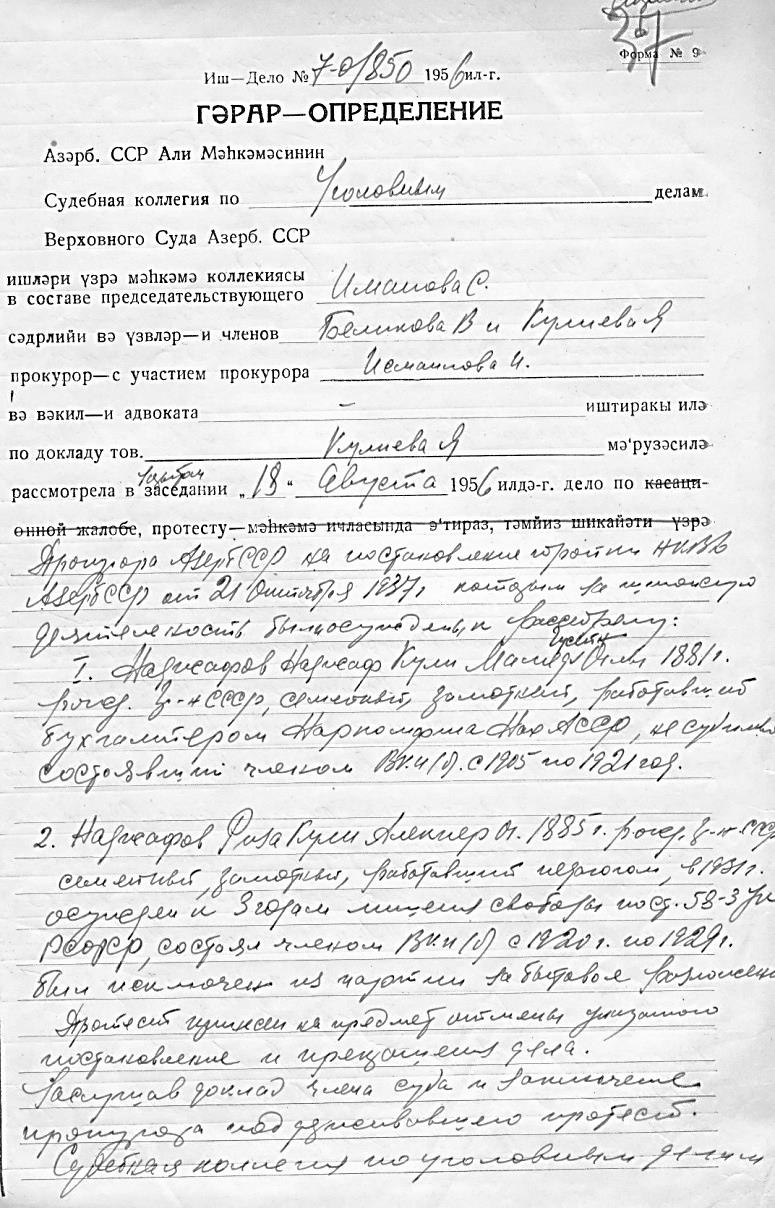 37
Форма № 9
Иш—Дело № 7-0/850 1956 ил-г.
ГӘРАР—ОПРЕДЕЛЕНИЕ
Азәрб. ССР Али Мәһкәмәсинин
Судебная коллегия по Уголовным делам
Верховного Суда Азерб. ССР
ишләри үзрә мәһкәмә коллекиясы
в составе председательствующего Иманова С.
сәдрлийи вә үзвләр—и членов Беликова В и Кулиева Я
прокурор—с участием прокурора Исмаилова И.
вә вәкил—и адвоката — иштиракы илә
по докладу тов. Кулиева Я мә'рузәсилә
рассмотрела в заседании „18" Августа 1956 илдә-г. дело по касаци-
онной жалобе, протесту—мәһкәмә ичласында э'тираз, тәмйиз шикайәти үзрә
Прокурора АзербССР на постановление тройки НКВД
АзербССР от 21 Октября 1937г. которым за шпионскую
деятельность были осуждены к расстрелу:
1. Наджафов Наджаф Кули Мамед Гусейн Оглы 1881г.
рожд. гр-н СССР, семейный, грамотный, работавший
бухгалтером Наркомфина Нах АССР, не судимый
состоявший членом ВКП(б). с 1905 по 1921 год.
2. Наджафов Риза Кули Алекпер о. 1885 г. рожд. гр-н СССР
семейный, грамотный, работавший педагогом, в 1931г.
осужден к 3 годам лишения свободы по ст. 58-3 УК
РСФСР, состоял членом ВКП(б) с 1920г. по 1929г.
был исключен из партии за бытовое разложение
Протест принесен на предмет отмены указанного
постановление и прекращения дела.
Заслушав доклад члена суда и заключение
прокурора поддержившего протест.
Судебная коллегия по уголовным делам